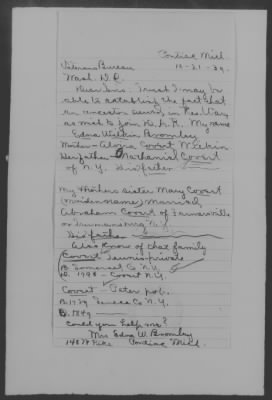 Pontiac Mich
10-21-39.
Veterans Bureau
Wash. D.C.
Dear Sirs: Trust I may be
able to establish the fact that
an ancestor served in Rev. War
as wish to join D.A.R. My name
Edna Welkin Bromley
Mother - Gloria Covert Welkin
Her father - Nathanial Covert
of N.Y. His father —
My Mothers sister Mary Covert
(maiden name) married
Abraham Covert of Farmerville
or Trumansburg N.Y.
His father —
Also know of that family
Covert Teunis - private
B. Somerset Co N.Y.
D. 1798 - Covert N.Y.
Covert - Peter
B. 1779 Seneca Co N.Y.
D. 1849 —
Could you help me?
Mrs Edna W. Bromley
Pontiac Mich.